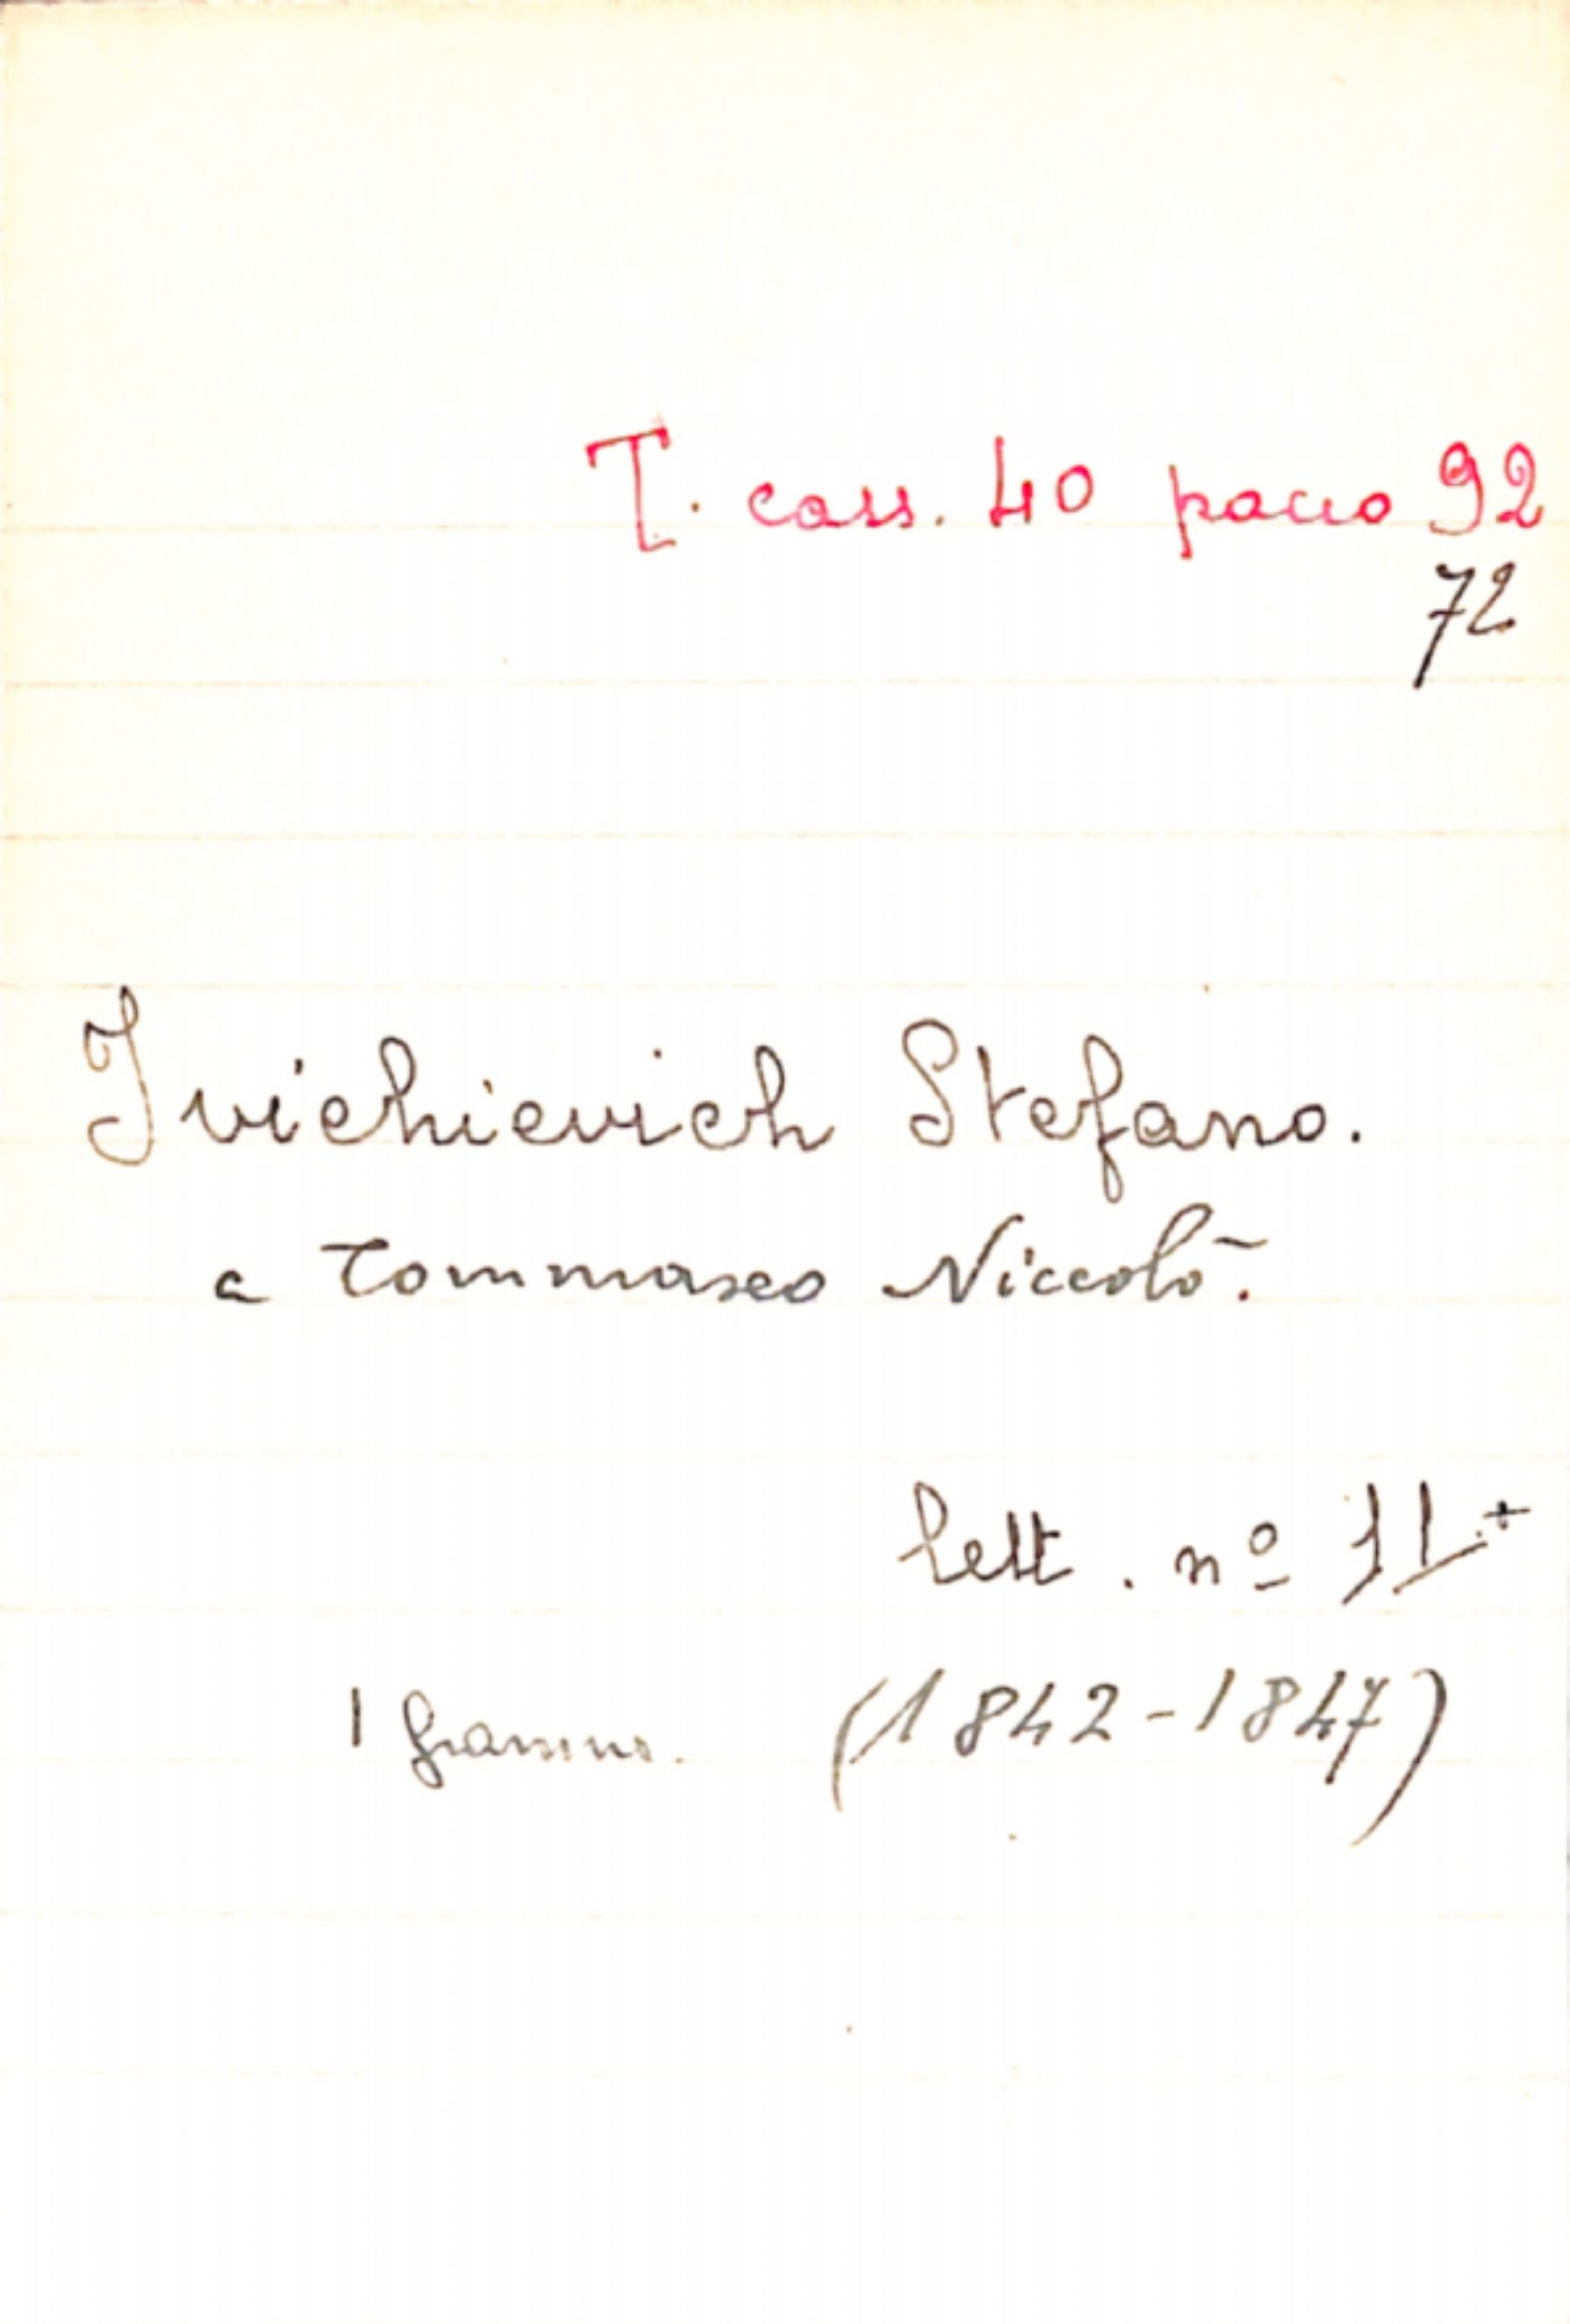 T. cass. 40 pacco 92
72
Ivichievich Stefano.
a Tommaseo Niccolò.
lett. nº 11 +
1 framm. (1842-1847)